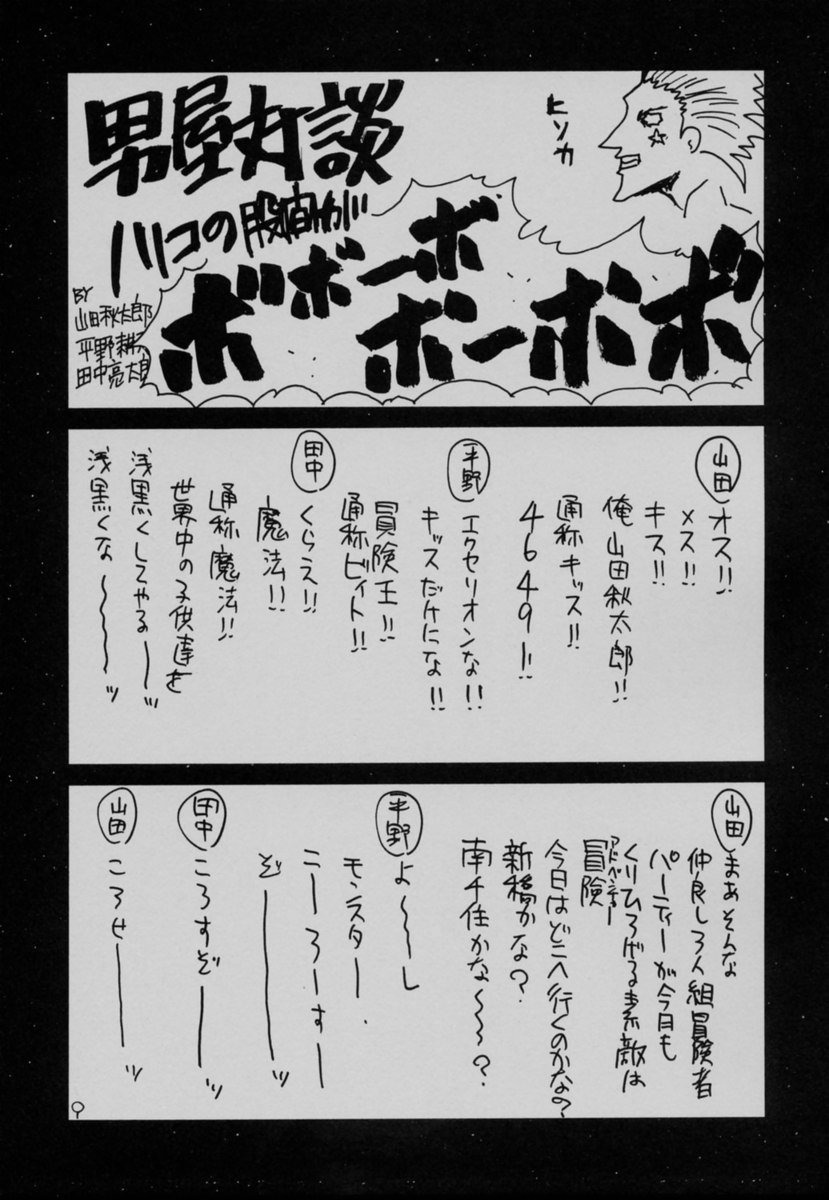 男屋対談
ハリコの股間が
ボボボーボ
ボーボボ
ヒソカ
BY
山田秋太郎
平野耕太
田中亮太郎
山田
オス!!
メス!!
キス!!
俺山田秋太郎!!
通称キッス!!
4649ー!!
平野
エクセリオンな!!
キッスだけにな!!
冒険王!!
通称ビィト!!
田中
くらえ!!
魔法!!
通称魔法!!
世界中の子供達を
浅黒くしてやる〜〜ッ
浅黒くな〜〜〜ッ
山田
まあそんな
仲良し3人組冒険者
パーティーが今日も
くりひろげる素敵な
冒険
アドベンチャー
今日はどこへ行くのかな?
新宿かな?
南千住かな〜〜?
平野
よ〜〜し
モンスター
こーろーすー
ぞ―――ッ
田中
ころすぞ―――ッ
山田
ころせ―――ッ